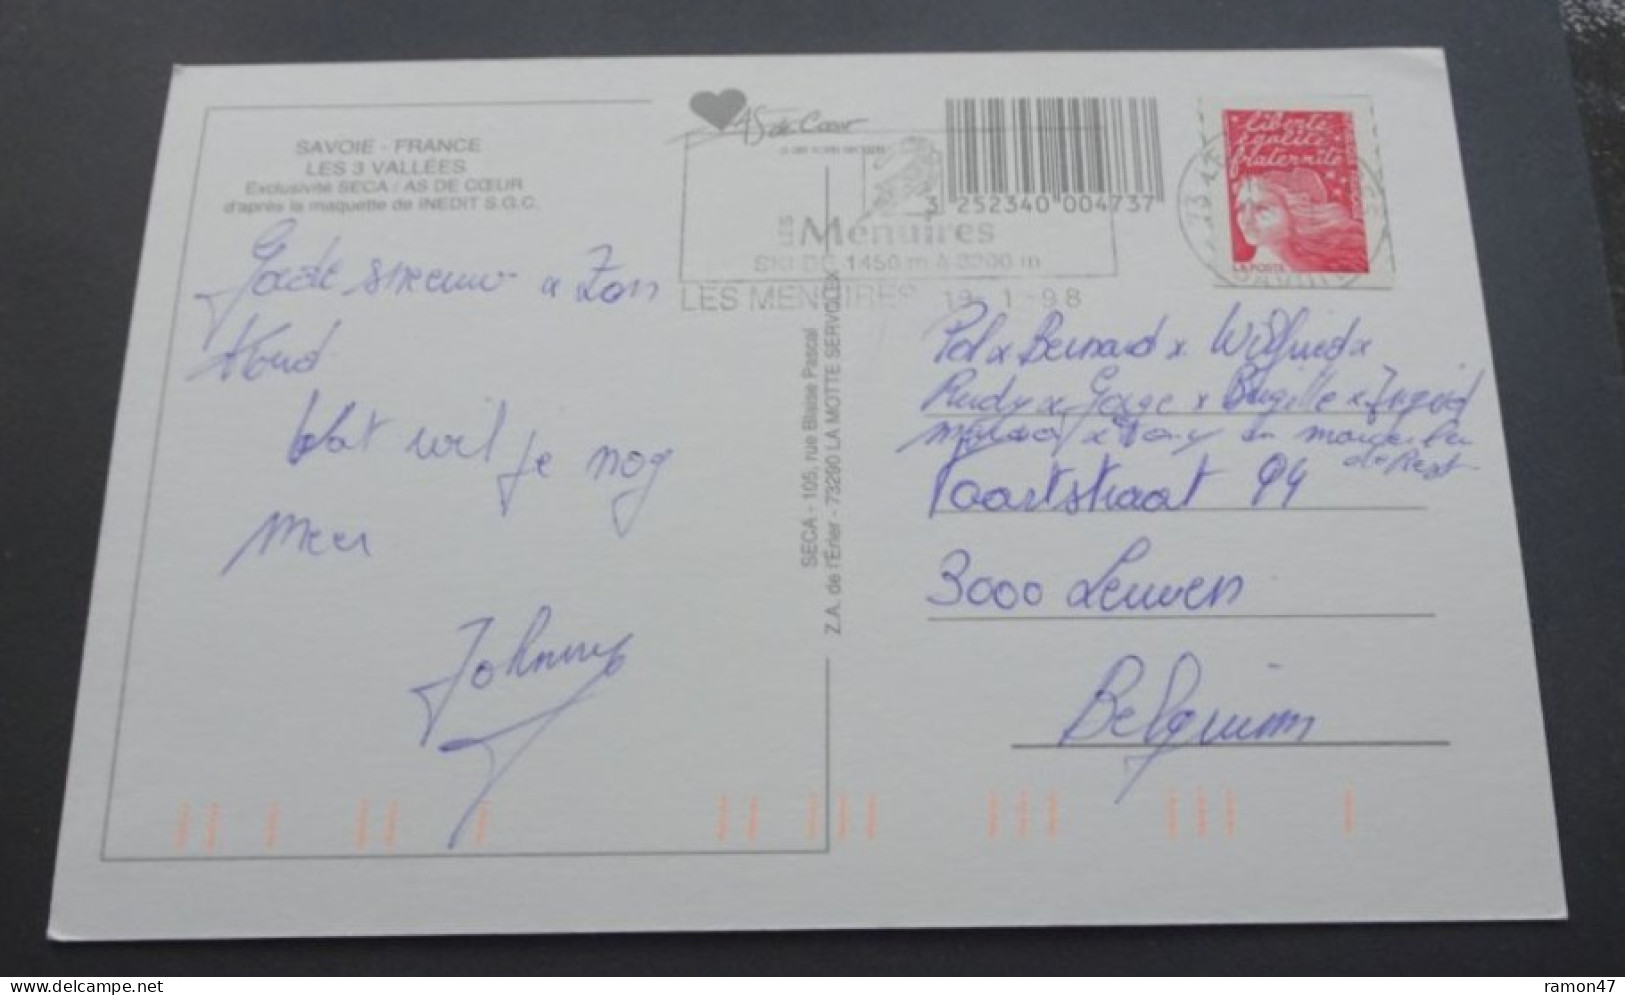 SAVOIE - FRANCE
LES 3 VALLÉES
Exclusivité SECA / AS DE CŒUR
d'après la maquette de INEDIT S.G.C.
Goede sneeuw x Zon
Koud
Wat wil je nog
meer
Johnny
AS de Cœur
3 252340 004737
LES Menuires
SKI DE 1450 m A 3200 m
LES MENUIRES 19-1-98
liberté
égalité
fraternité
LA POSTE
SECA - 105, rue Blaise Pascal
Z.A. de l'Érier - 73290 LA MOTTE SERVOLEX
Pol x Bernard x Wilfried x
Rudy x George x Brigitte x Ingrid
x en
de Rest
Vaartstraat 94
3000 Leuven
Belgium
www.delcampe.net
ramon47